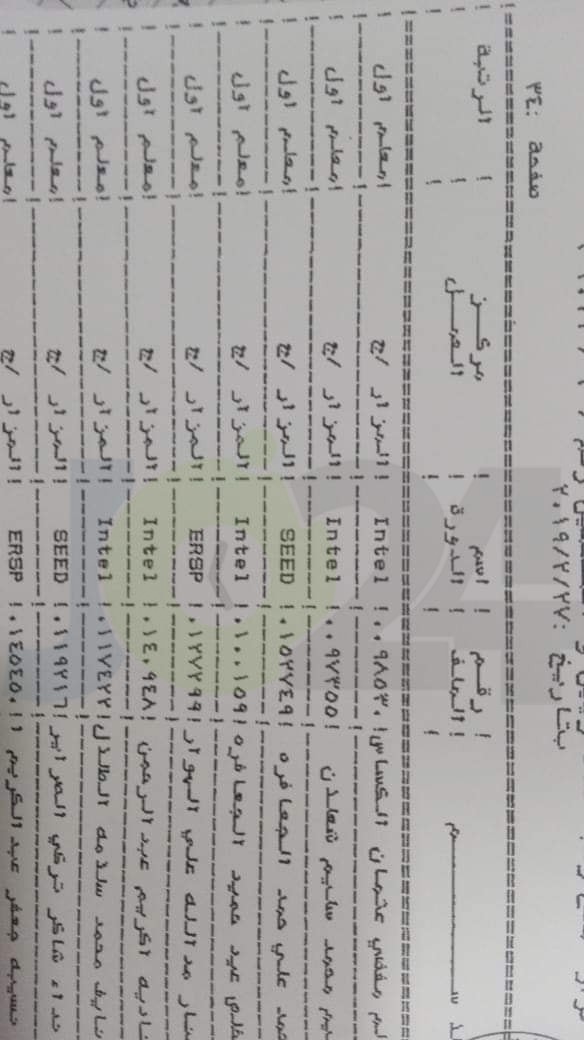 بتاريخ :٢٠١٩/٢/٢٧
صفحة :٣٤
رقم اسم مركز الرتبة
الملف الدورة العمل
مفضي عثمان الكساس ٠٠٩٨٥٣٠ Intel المزار /ج معلم اول
محمد سليم شعلان ٠٠٩٧٣٥٥ Intel المزار /ج معلم اول
حمد علي حمد الجعافره ٠١٥٢٧٤٩ SEED المزار /ج معلم اول
عبد حميد الجعافره ٠١٠٠١٥٩ Intel المزار /ج معلم اول
منار مدالله علي الهوار ٠١٢٧٢٩٩ ERSP المزار /ج معلم اول
نادية اكريم عبدالرحمن ٠١٤٠٩٤٨ Intel المزار /ج معلم اول
نايف محمد سلامه الطلال ٠١١٧٤٢٢ Intel المزار /ج معلم اول
نداء شاكر تركي الصراير ٠١١٩٢١٦ SEED المزار /ج معلم اول
نسيبه جعفر عبد الكريم ا ٠١٤٥٤٥٠ ERSP المزار /ج معلم اول
JO24